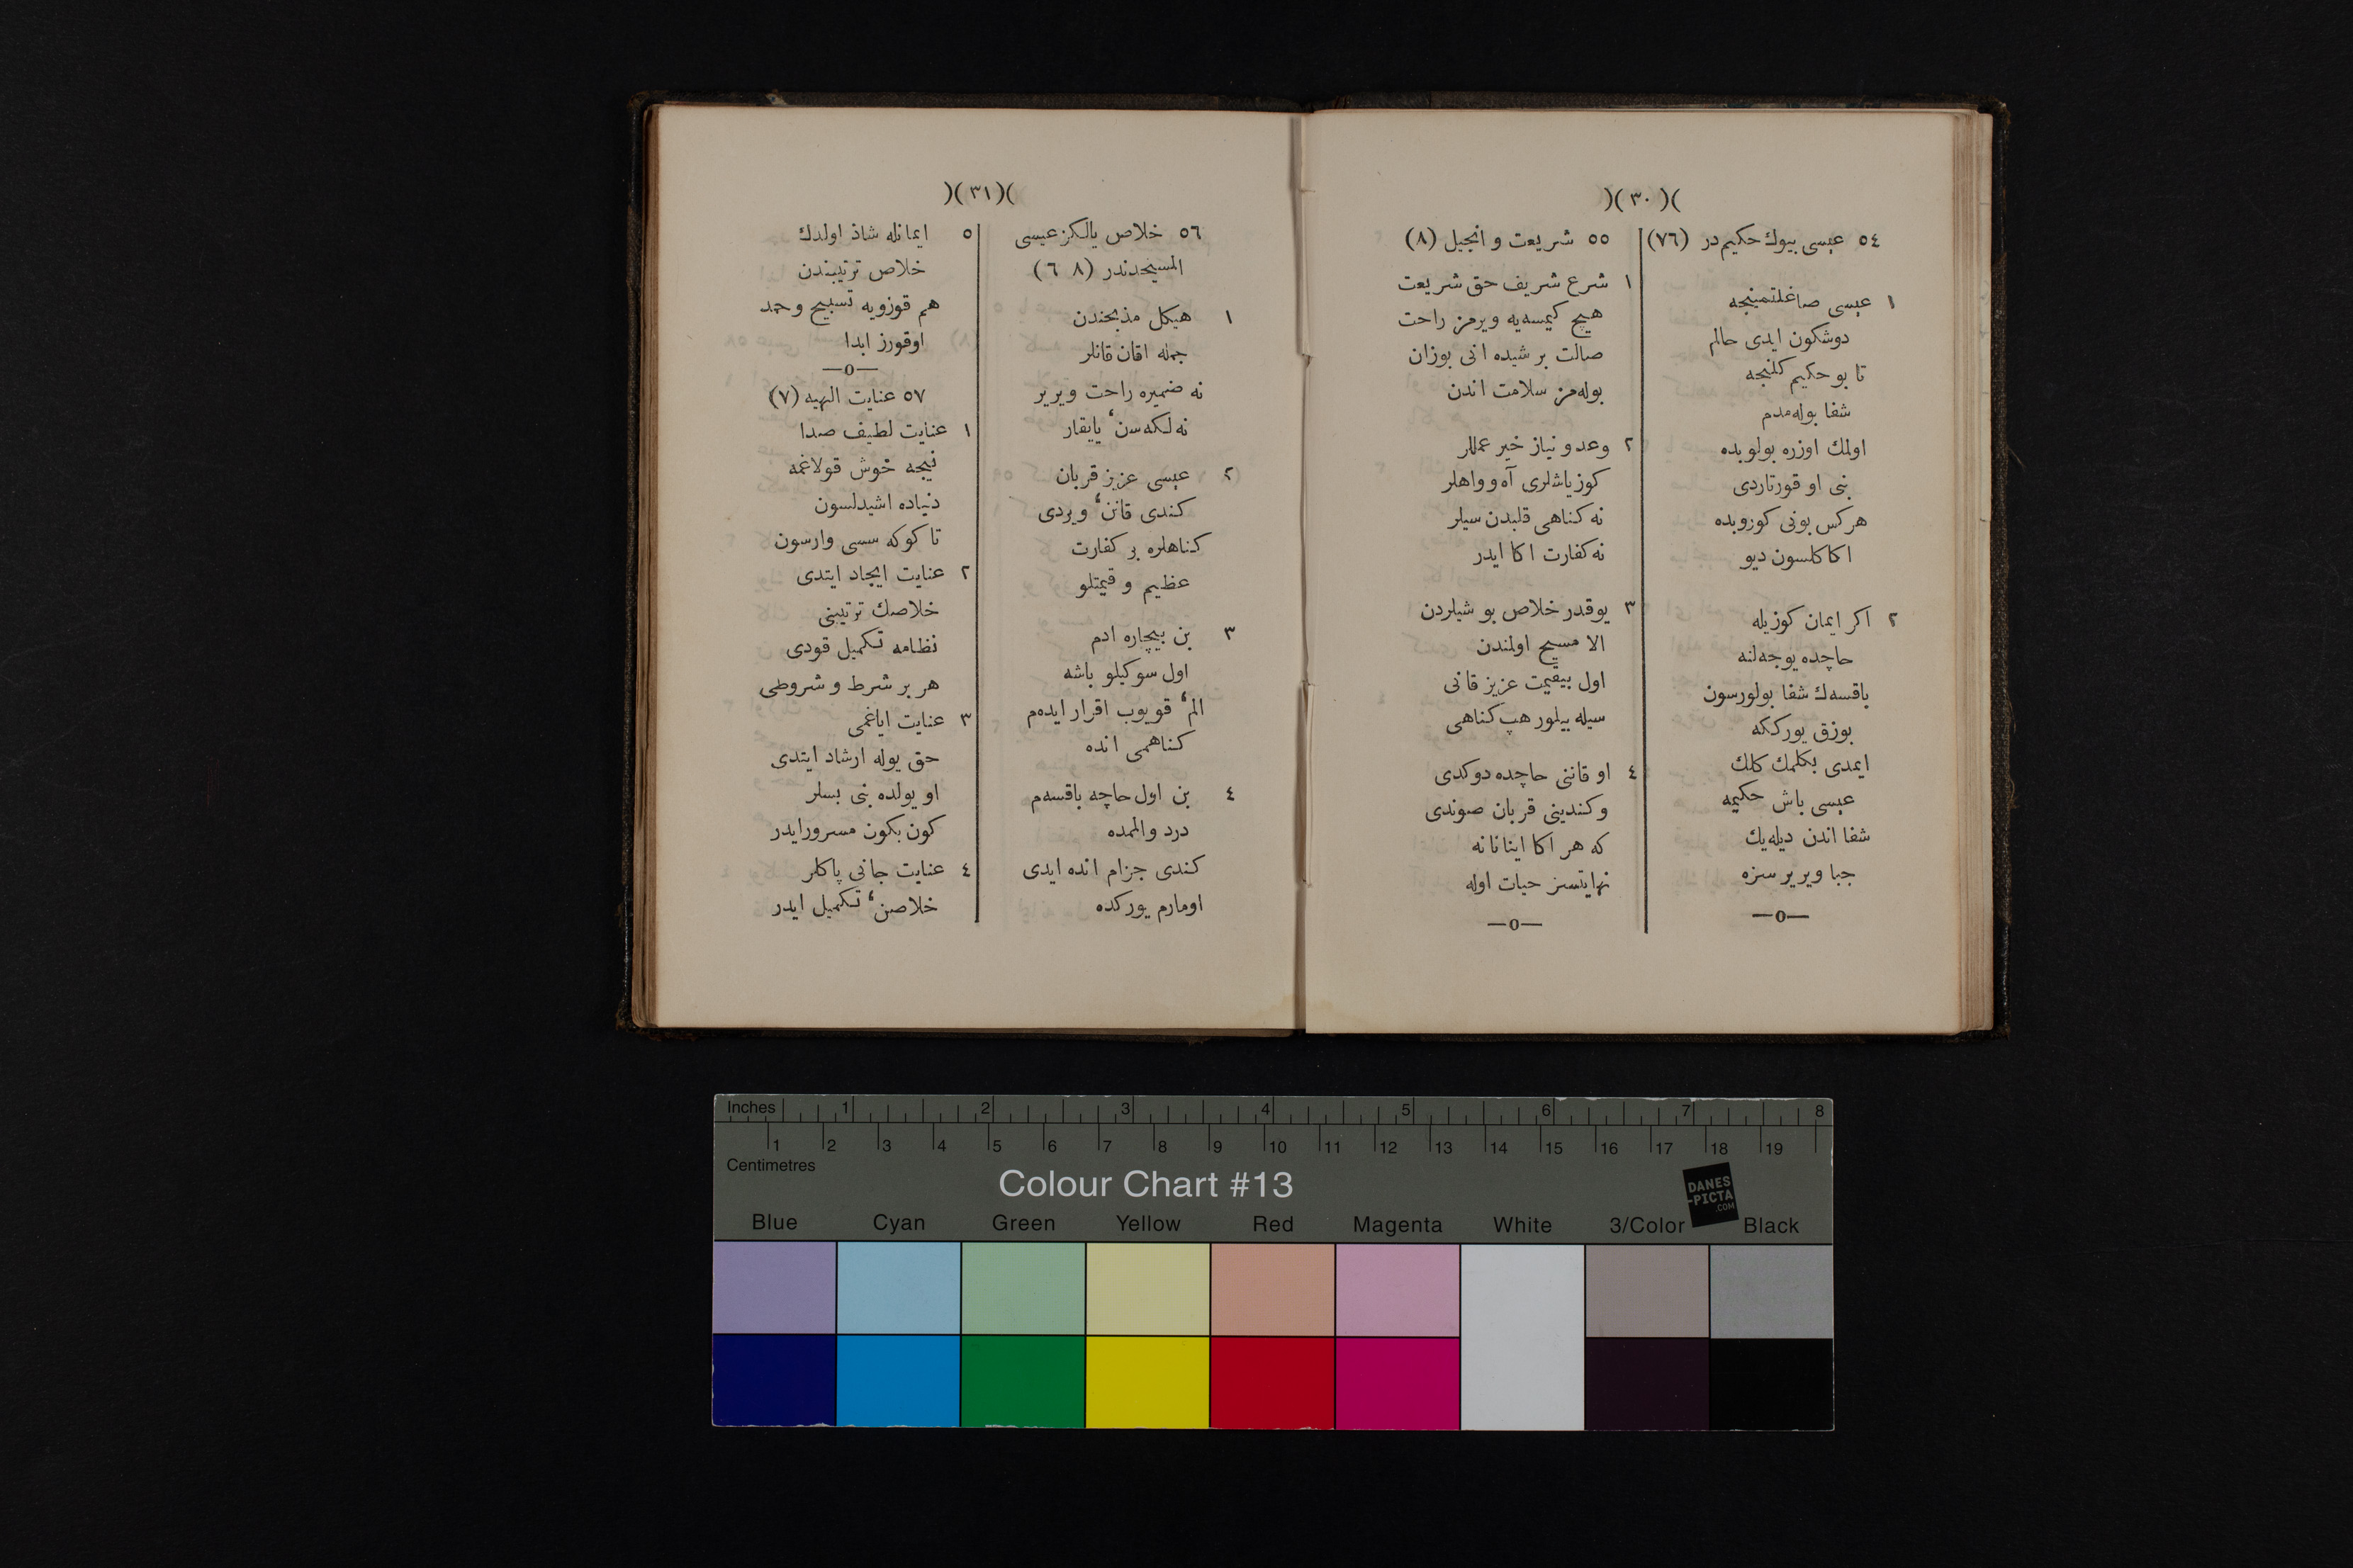 )( ٣٠ )(
٥٤ عيسى بيوك حكيم در (٧٦)
١ عيسى صاغلتمينجه
دوشكون ايدى حالم
تا بو حكيم كلنجه
شفا بوله مدم
اولمك اوزره بولوبده
بنى او قورتاردى
هركس بونى كوروبده
اكا كلسون ديو
٢ اكر ايمان كوزيله
حاچده يوجه لنه
باقسه ك شفا بولورسون
بوزق يورككه
ايمدى بكلمك كلك
عيسى باش حكيمه
شفا اندن ديله يك
جبا ويرير سزه
—٥—
٥٥ شريعت و انجيل (٨)
١ شرع شريف حق شريعت
هيچ كيمسه يه ويرمز راحت
صالت بر شيده انى بوزان
بوله مز سلامت اندن
٢ وعد و نياز خير عمللر
كوز ياشلرى آه و واهلر
نه كناهى قلبدن سيلر
نه كفارت اكا ايدر
٣ يوقدر خلاص بو شيلردن
الا مسيح اولمندن
اول بيقيمت عزيز قانى
سيله بيلور هپ كناهى
٤ او قاننى حاچده دوكدى
و كندينى قربان صوندى
كه هر اكا اينانانه
نهايتسز حيات اوله
—٥—
)( ٣١ )(
٥٦ خلاص يالكز عيسى
المسيحدندر (٨ ٦)
١ هيكل مذبحندن
جمله اقان قانلر
نه ضميره راحت ويرير
نه لكه سنء يايقار
٢ عيسى عزيز قربان
كندى قاننء ويردى
كناهلره بر كفارت
عظيم و قيمتلو
٣ بن بيچاره ادم
اول سوكيلو باشه
المء قويوب اقرار ايده م
كناهمى انده
٤ بن اول حاچه باقسه م
درد و المده
كندى جزام انده ايدى
اومارم يوركده
٥ ايمانله شاذ اولدك
خلاص ترتيبندن
هم قوزويه تسبيح و حمد
اوقورز ابدا
—٥—
٥٧ عنايت الهيه (٧)
١ عنايت لطيف صدا
نيجه خوش قولاغمه
دنياده اشيدلسون
تا كوكه سسى وارسون
٢ عنايت ايجاد ايتدى
خلاصك ترتيبنى
نظامه تكميل قودى
هر بر شرط و شروطى
٣ عنايت اياغمى
حق يوله ارشاد ايتدى
او يولده بنى بسلر
كون بكون مسرور ايدر
٤ عنايت جانى پاكلر
خلاصنء تكميل ايدر
Inches 1 2 3 4 5 6 7 8
1 2 3 4 5 6 7 8 9 10 11 12 13 14 15 16 17 18 19
Centimetres
Colour Chart #13
DANES
-PICTA
.COM
Blue Cyan Green Yellow Red Magenta White 3/Color Black